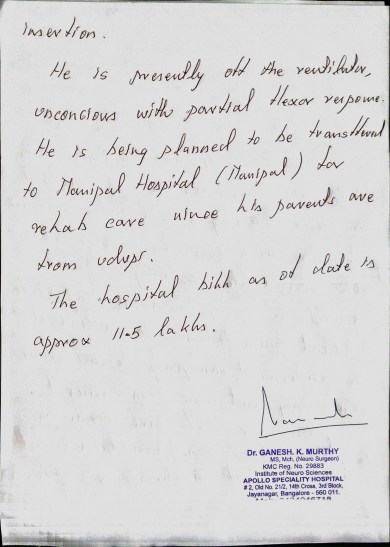 insertion.
He is presently off the ventilator,
unconcious with partial flexor response.
He is being planned to be transferred
to Manipal Hospital (Manipal) for
rehab care since his parents are
from udupi.
The hospital bill as of date is
approx 11.5 lakhs.
Dr. GANESH. K. MURTHY
MS, Mch, (Neuro Surgeon)
KMC Reg. No. 29883
Institute of Neuro Sciences
APOLLO SPECIALITY HOSPITAL
# 2, Old No. 21/2, 14th Cross, 3rd Block,
Jayanagar, Bangalore - 560 011.